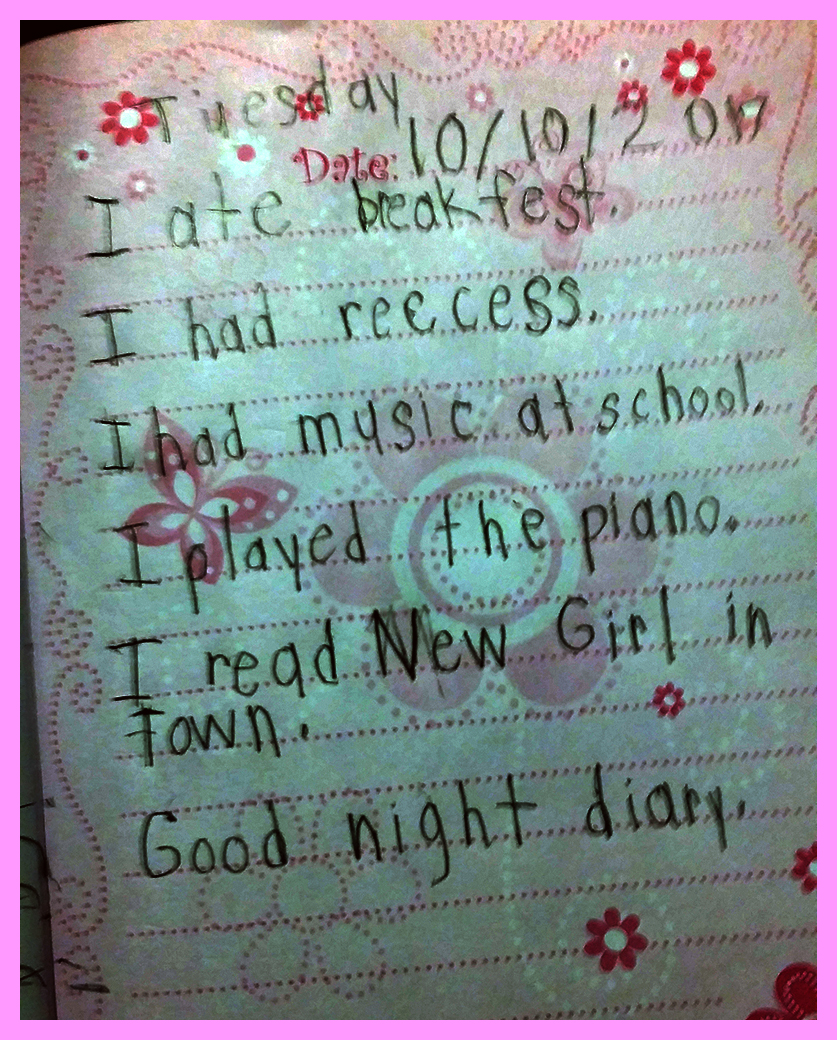 Tuesday
Date: 10/10/2017
I ate breakfest.
I had reecess.
I had music at school.
I played the piano.
I read New Girl in
town.
Good night diary.